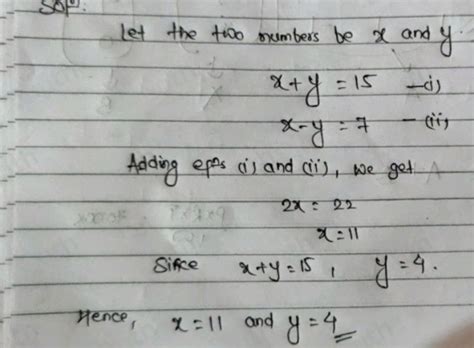 Solⁿ.
Let the two numbers be x and y.
x+y = 15 —(i)
x-y = 7 —(ii)
Adding eqⁿs (i) and (ii), we get
2x = 22
x = 11
Since x+y = 15, y = 4.
Hence, x = 11 and y = 4